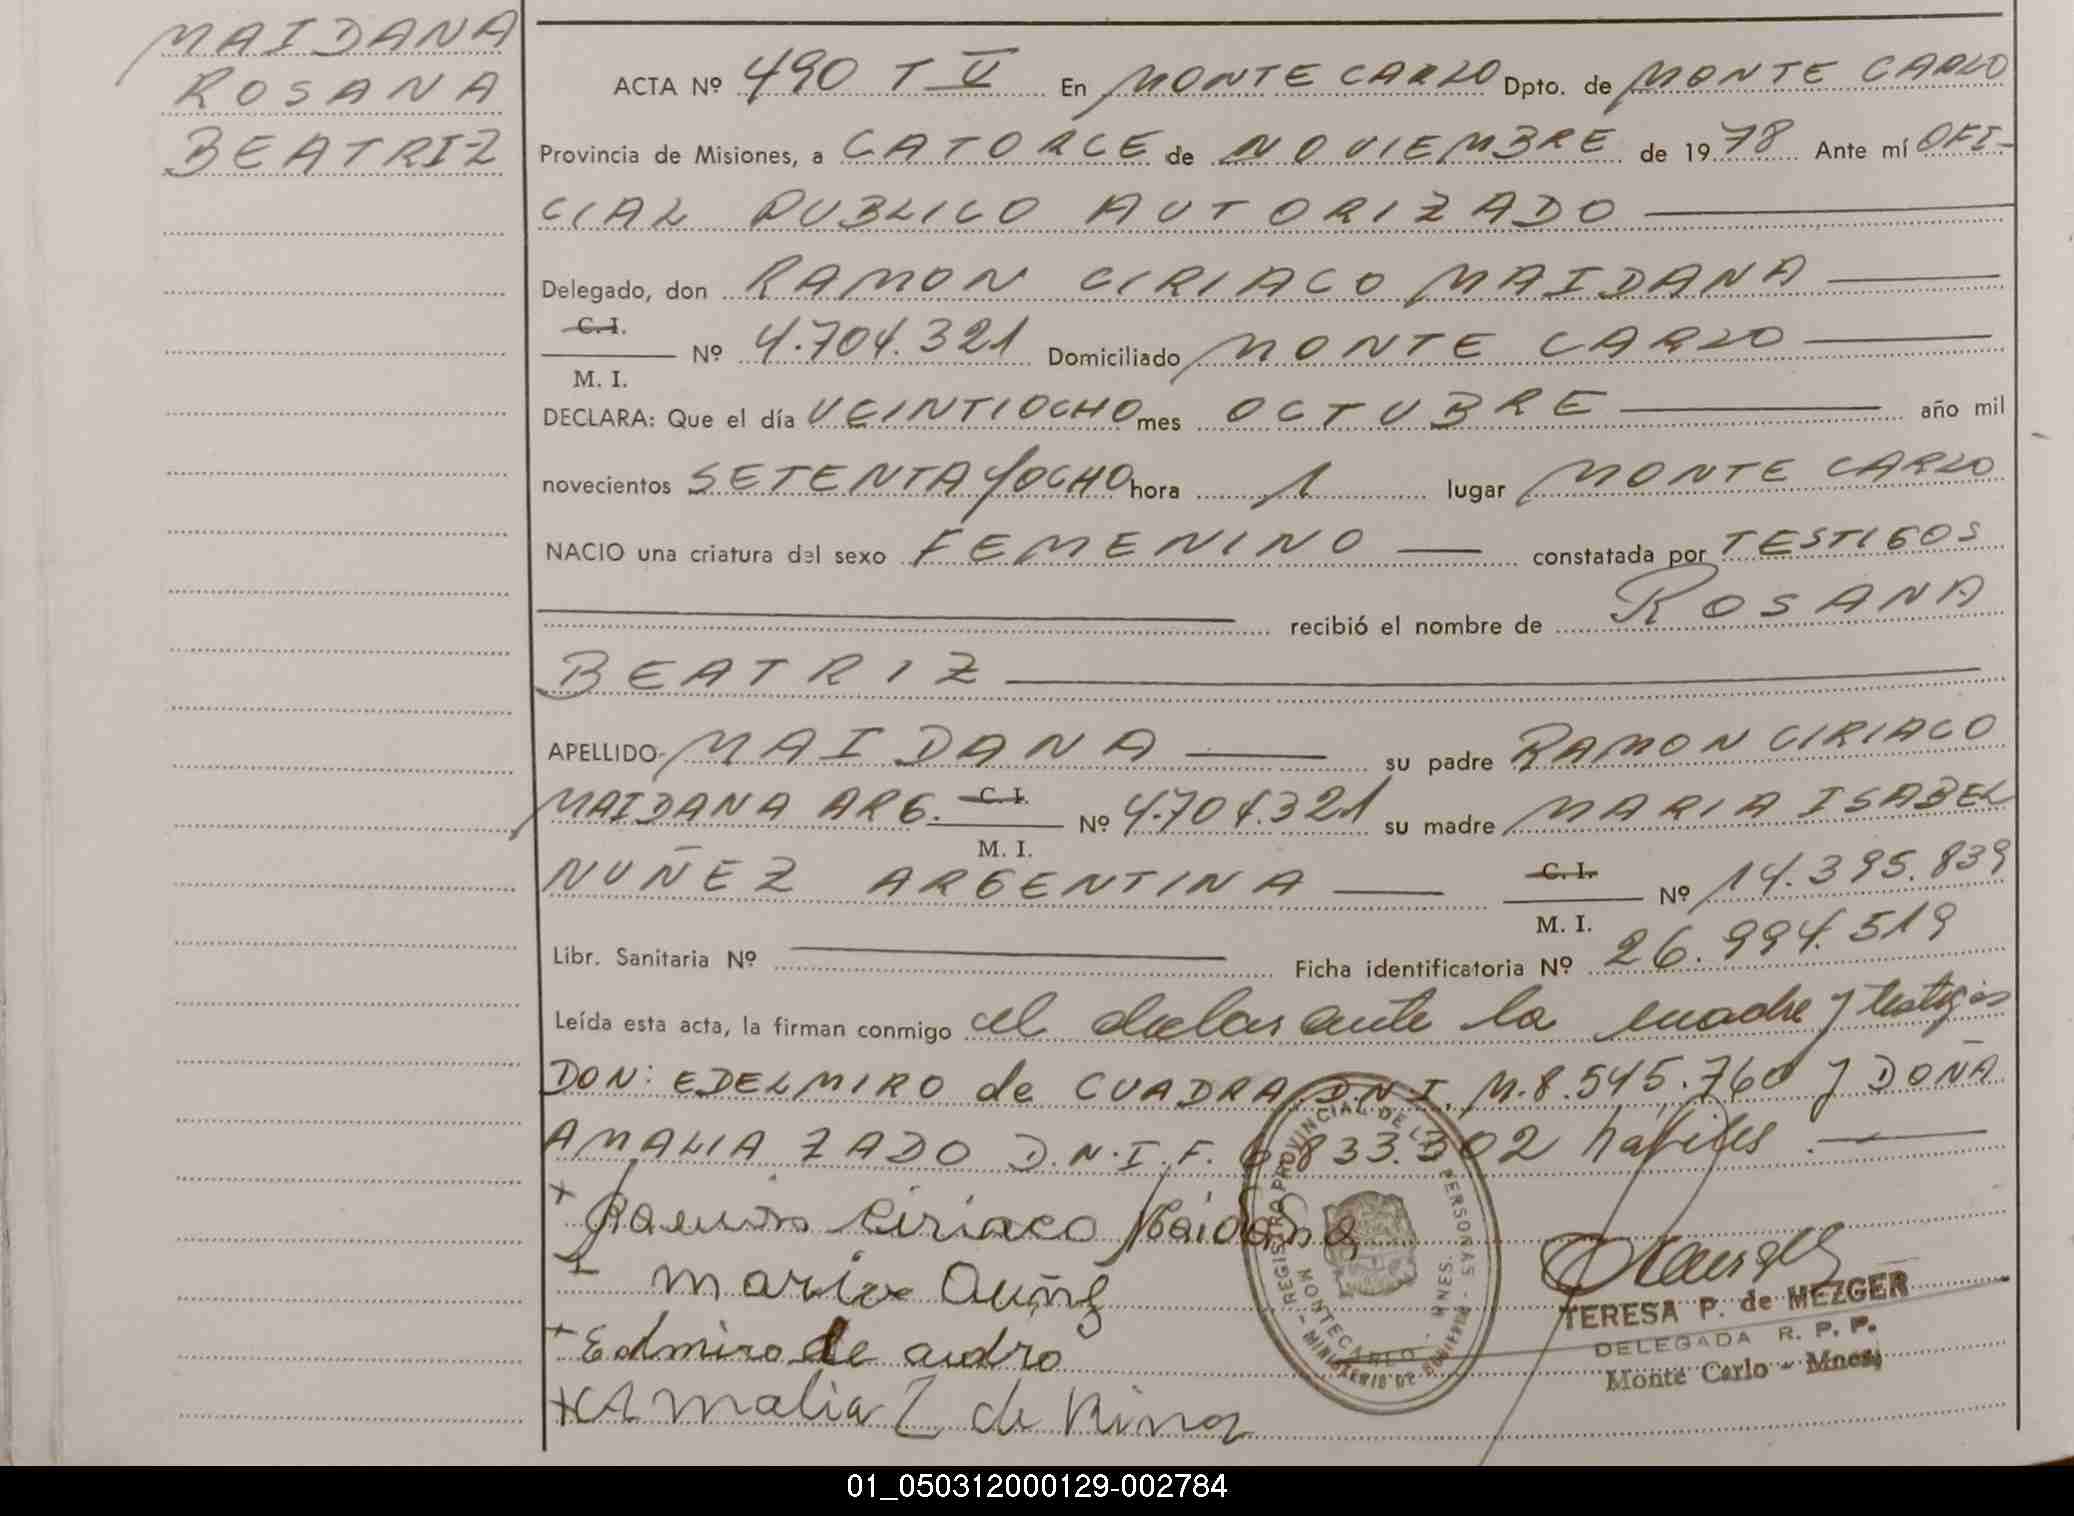 MAIDANA
ROSANA
BEATRIZ
ACTA Nº 490 T V En MONTE CARLO Dpto. de MONTE CARLO
Provincia de Misiones, a CATORCE de NOVIEMBRE de 1978 Ante mí OFI-
CIAL PUBLICO AUTORIZADO
Delegado, don RAMON CIRIACO MAIDANA
C. I.
Nº 4.704.321 Domiciliado MONTE CARLO
M. I.
DECLARA: Que el día VEINTIOCHO mes OCTUBRE año mil
novecientos SETENTA Y OCHO hora 1 lugar MONTE CARLO
NACIO una criatura del sexo FEMENINO constatada por TESTIGOS
recibió el nombre de ROSANA
BEATRIZ
APELLIDO MAIDANA su padre RAMON CIRIACO
MAIDANA ARG. C. I. Nº 4.704.321 su madre MARIA ISABEL
M. I.
NUÑEZ ARGENTINA C. I. Nº 14.395.839
M. I.
Libr. Sanitaria Nº Ficha identificatoria Nº 26.994.519
Leída esta acta, la firman conmigo el declarante la madre y testigos
DON: EDELMIRO de CUADRA D.N.I. M.8.545.760 y DOÑA
AMALIA ZADO D.N.I.F. 6.833.302 habiles.
+ Ramon Ciriaco Maidana
+ Maria
+ Edmiro de
+ Amalia Z de
REGISTRO PROVINCIAL DE LAS PERSONAS - MINISTERIO DE GOBIERNO -
MONTECARLO - MNES.
TERESA P. de MEZGER
DELEGADA R. P. P.
Monte Carlo - Mnes.
01_050312000129-002784